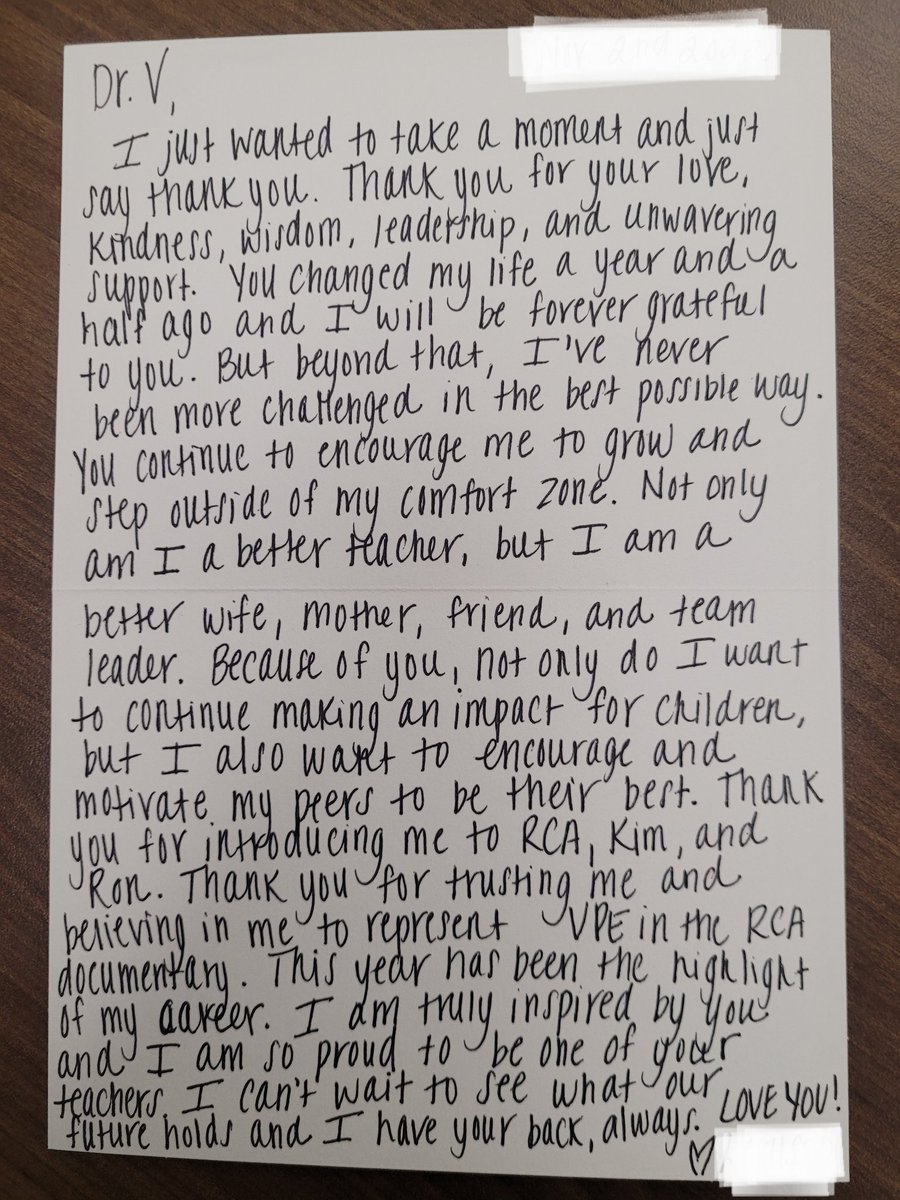 Dr. V,
I just wanted to take a moment and just
say thank you. Thank you for your love,
kindness, wisdom, leadership, and unwavering
support. You changed my life a year and a
half ago and I will be forever grateful
to you. But beyond that, I've never
been more challenged in the best possible way.
You continue to encourage me to grow and
step outside of my comfort zone. Not only
am I a better teacher, but I am a
better wife, mother, friend, and team
leader. Because of you, not only do I want
to continue making an impact for children,
but I also want to encourage and
motivate my peers to be their best. Thank
you for introducing me to RCA, Kim, and
Ron. Thank you for trusting me and
believing in me to represent VPE in the RCA
documentary. This year has been the highlight
of my career. I am truly inspired by you
and I am so proud to be one of your
teachers. I can't wait to see what our
future holds and I have your back, always. LOVE YOU!